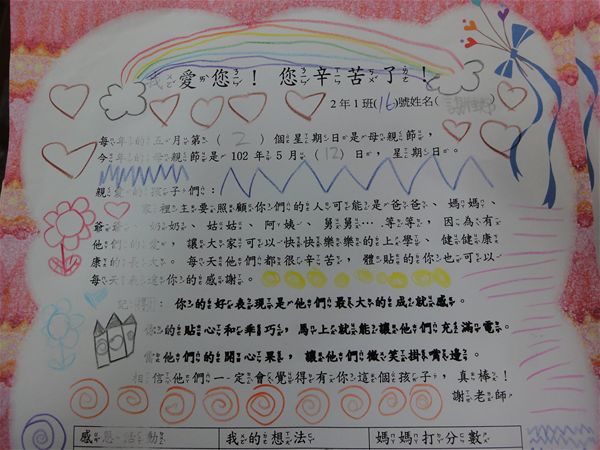 我愛您！ 您辛苦了！
2年1班(16)號姓名(
每年的五月第（2）個星期日是母親節，
今年的母親節是102年5月（12）日，星期日。
親愛的孩子們：
家裡主要照顧你們的人可能是爸爸、媽媽、
爺爺、奶奶、姑姑、阿姨、舅舅…等等，因為有
他們的愛，讓大家可以快快樂樂的上學、健健康
康的長大。每天他們都很辛苦，體貼的你也可以
每天表達你的感謝。
記得：你的好表現是他們最大的成就感。
你的貼心和乖巧，馬上就能讓他們充滿電。
當他們的開心果，讓他們微笑掛嘴邊。
相信他們一定會覺得有你這個孩子，真棒！
謝老師
感恩活動 我的想法 媽媽打分數